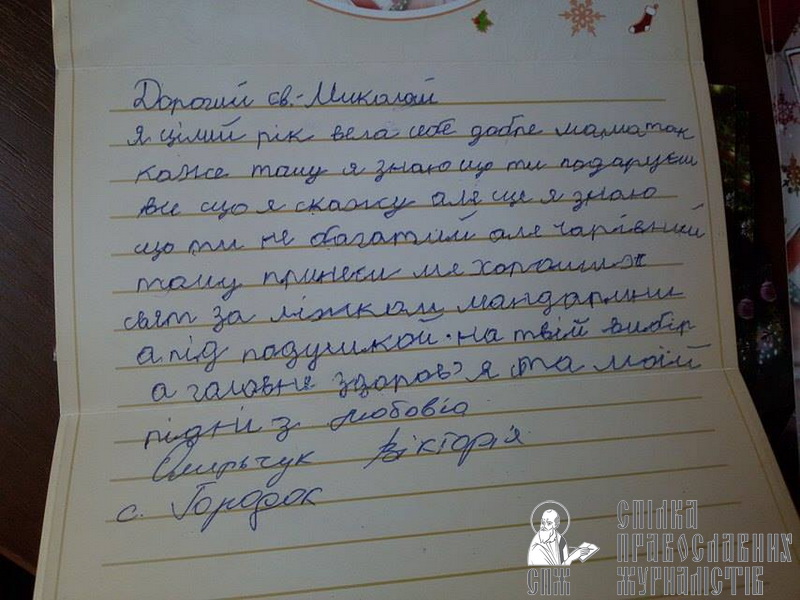 Дорогий св.-Миколай
я цілий рік вела себе добре мама так
каже таму я знаю що ти подаруєш
все що я скажу але ще я знаю
що ти не багатий але чарівний
таму принеси ме хороших
свят за ліжком мандарини
а під подушкой. на твій вибір
а галовне здоров'я та моїй
рідні з любовію
Вікторія
с. Городок
СПІЛКА
ПРАВОСЛАВНИХ
ЖУРНАЛІСТІВ
СПЖ